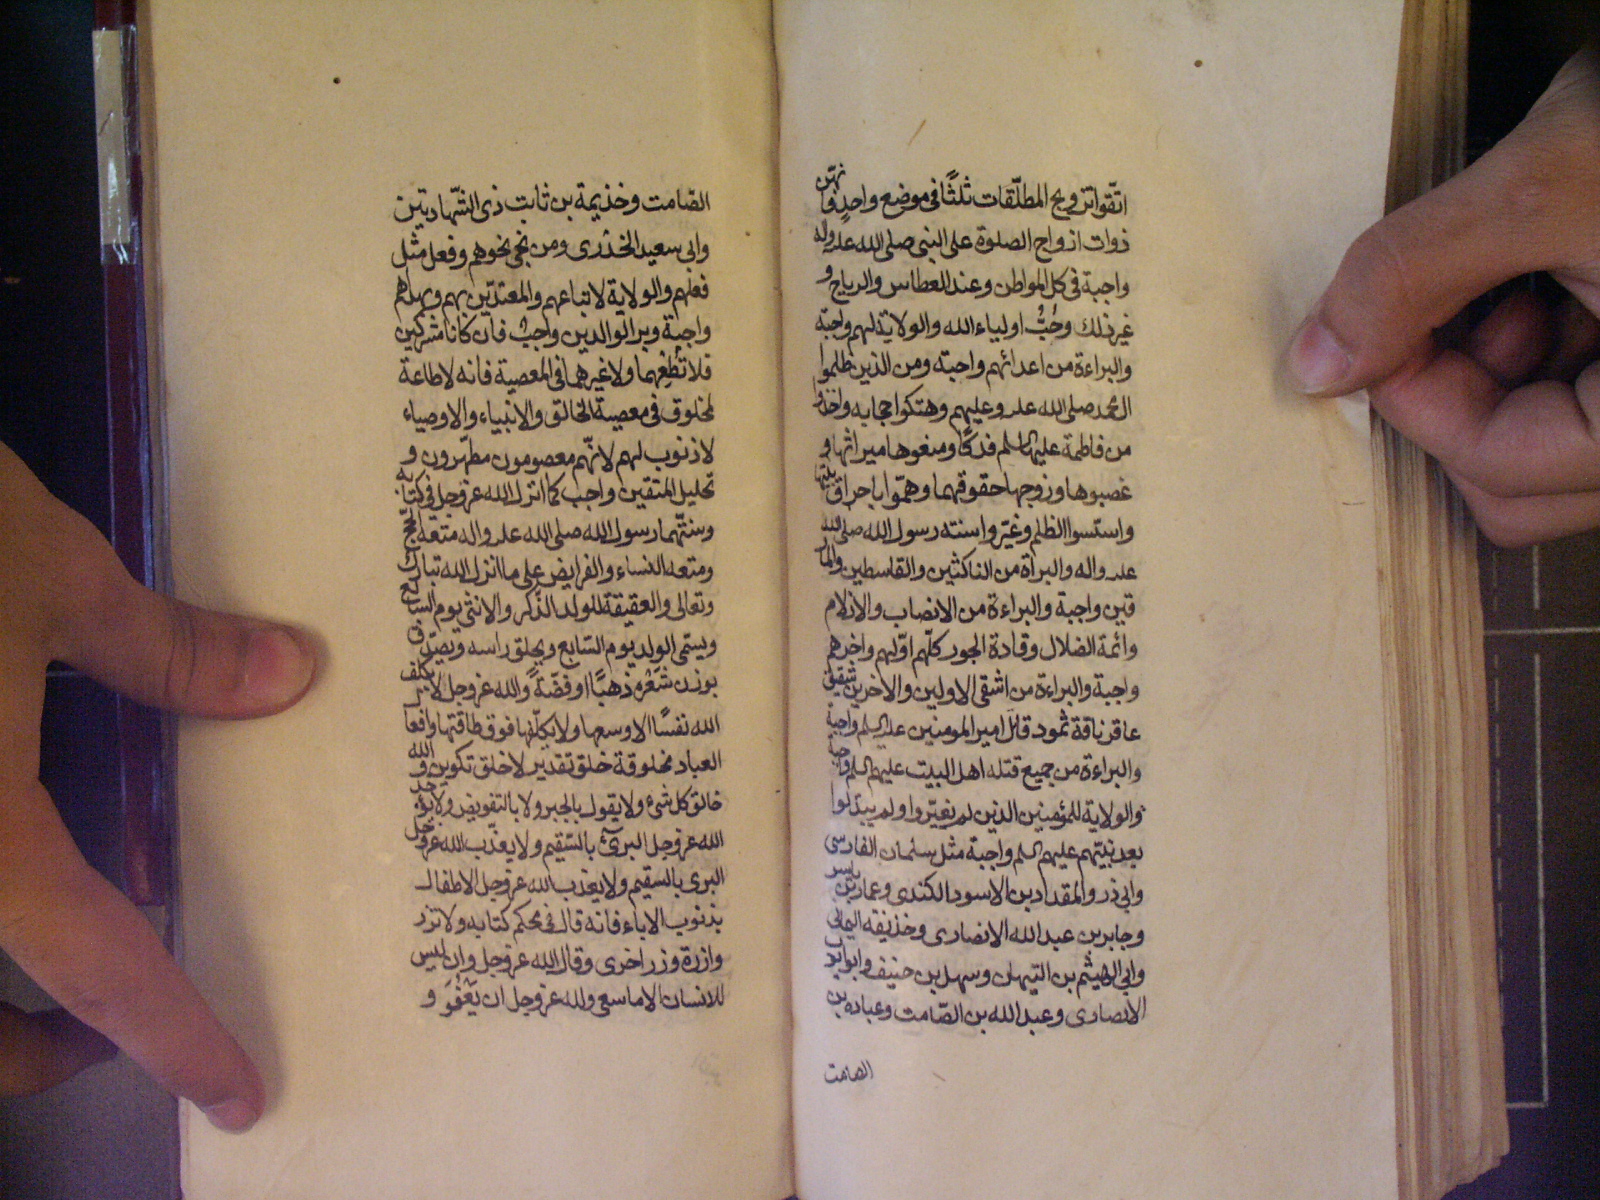 اتّقوا تزويج المطلّقات ثلثًا فى موضع واحدٍ فانهنّ
ذوات ازواج الصلوة على النبى صلى الله عليه وآله
واجبة فى كل المواطن وعند العطاس والرياح و
غير ذلك وحُبُّ اولياء الله والولاية لهم واجبة
والبراءة من اعدائهم واجبة ومن الذين ظلموا
آل محمد صلى الله عليه وعليهم وهتكوا حجابه واخذوا
من فاطمة عليها السلم فدكًا ومنعوها ميراثها و
غصبوها وزوجها حقوقهما وهمّوا باحراق بيتها
واسّسوا الظلم وغيّروا سنة رسول الله صلى الله
عليه واله والبرأة من الناكثين والقاسطين والمار
قين واجبة والبراءة من الانصاب والازلام
وائمة الضلال وقادة الجور كلّهم اوّلهم واخرهم
واجبة والبراءة من اشقى الاولين والاخرين شقيق
عاقر ناقة ثمود قاتل امير المومنين عليه السلم واجبة
والبراءة من جميع قتلة اهل البيت عليهم السلم واجبة
والولاية للمؤمنين الذين لم يغيّروا ولم يبدّلوا
بعد نبيّهم عليهم السلم واجبة مثل سلمان الفارسّى
وابى ذر والمقداد بن الاسود الكندى وعمار بن ياسر
وجابر بن عبد الله الانصارى وحذيفة اليمانى
وابى الهيثم بن التيهان وسهل بن حنيف وابو ايوب
الانصارى وعبد الله بن الصّامت وعباده بن
الصامت
الصّامت وخذيمة بن ثابت ذى الشّهادتين
وابى سعيد الخذرى ومن نحى نحوهم وفعل مثل
فعلهم والولاية لاتباعهم والمقتدّين بهم وبهداهم
واجبة وبر الوالدين واجبٌ فان كانا مشركين
فلا تُطِعهما ولا غيرهما فى المعصية فانه لا طاعة
لمخلوق فى معصية الخالق والانبياء والاوصياء
لا ذنوب لهم لانّهم معصومون مطهّرون و
تحليل المتعتين واجب كما انزل الله عزوجل فى كتابه
وسنّهما رسول الله صلى الله عليه واله متعة الحجّ
ومتعه النساء والفرايض على ما انزل الله تبارك
وتعالى والعقيقة للولد الذّكر والانثى يوم السابع
ويسمّى الولد يوم السّابع ويحلق راسه وتصدّق
بوزن شعره ذهبًا او فضّةً والله عزوجل لا يكلف
الله نفسًا الا وسعها ولا يكلّفها فوق طاقتها وافعال
العباد مخلوقة خلق تقدير لا خلق تكوين والله
خالق كل شىء ولا يقول بالجبر ولا بالتفويض ولا يؤخذ
الله عزوجل البرىء بالسّقيم ولا يعذّب الله عزوجل
البرى بالسقيم ولا يعذب الله عزوجل الاطفال
بذنوب الاباء فانه قال فى محكم كتابه ولا تزر
وازرة وزر اخرى وقال الله عزوجل وان ليس
للانسان الا ما سعى ولله عزوجل ان يَعْفُوَ و